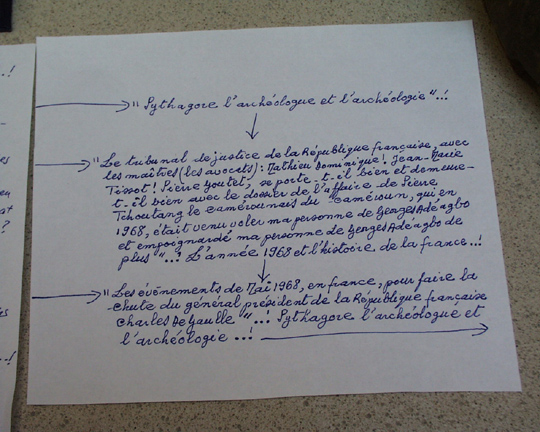 "Pythagore l'archéologue et l'archéologie"..!
"Le tribunal de justice de la République française, avec
les maîtres (les avocats): Mathieu Dominique! Jean-Marie
Tissot! Pierre Youtel, se porte-t-il bien et demeure-
t-il bien avec le dossier de l'affaire de Pierre
Tchoutang le camérounais du "Caméroun, qui en
1968, était venu voler ma personne de Georges Adéagbo
et empoignardé ma personne de Georges Adéagbo de
plus"..! L'année 1968 et l'histoire de la france..!
"Les événements de Mai 1968, en france, pour faire la
chute du général président de la République française
Charles De Gaulle"..! Pythagore l'archéologue et
l'archéologie..!